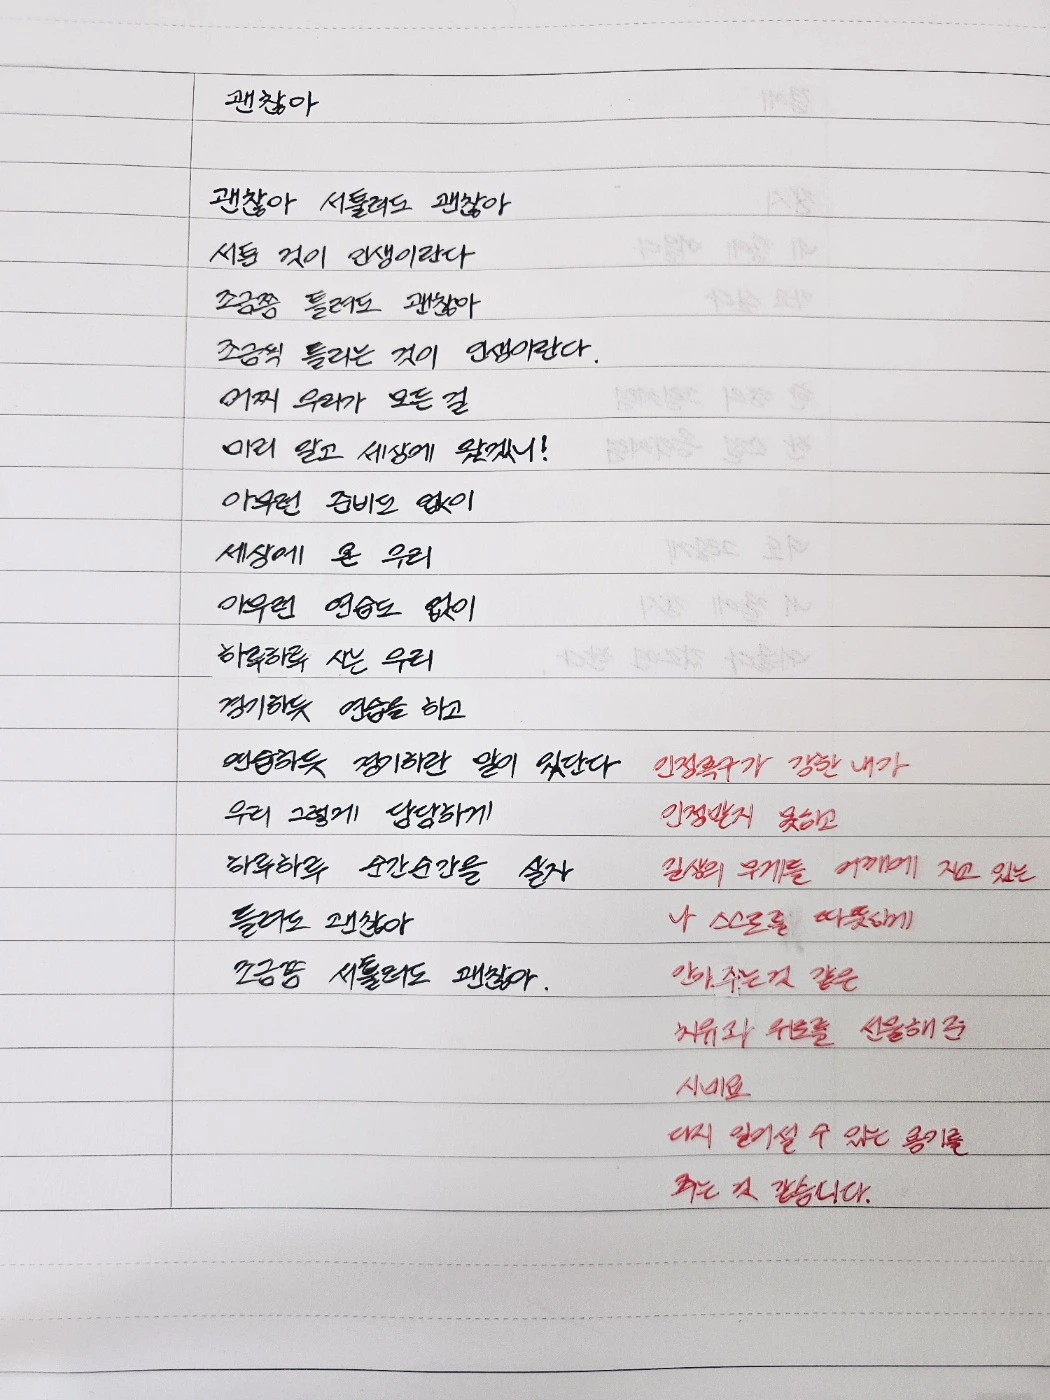 괜찮아
괜찮아 서툴러도 괜찮아
서툰 것이 인생이란다
조금쯤 틀려도 괜찮아
조금씩 틀리는 것이 인생이란다.
어찌 우리가 모든 걸
미리 알고 세상에 왔겠니!
아무런 준비도 없이
세상에 온 우리
아무런 연습도 없이
하루하루 사는 우리
경기하듯 연습을 하고
연습하듯 경기하란 말이 있단다
우리 그렇게 담담하게
하루하루 순간순간을 살자
틀려도 괜찮아
조금쯤 서툴러도 괜찮아.
인정욕구가 강한 내가
인정받지 못하고
인생의 무게를 어깨에 지고 있는
나 스스로를 따뜻하게
안아 주는것 같은
치유와 위로를 선물해 주
시네요
다시 일어설 수 있는 용기를
주는 것 같습니다.